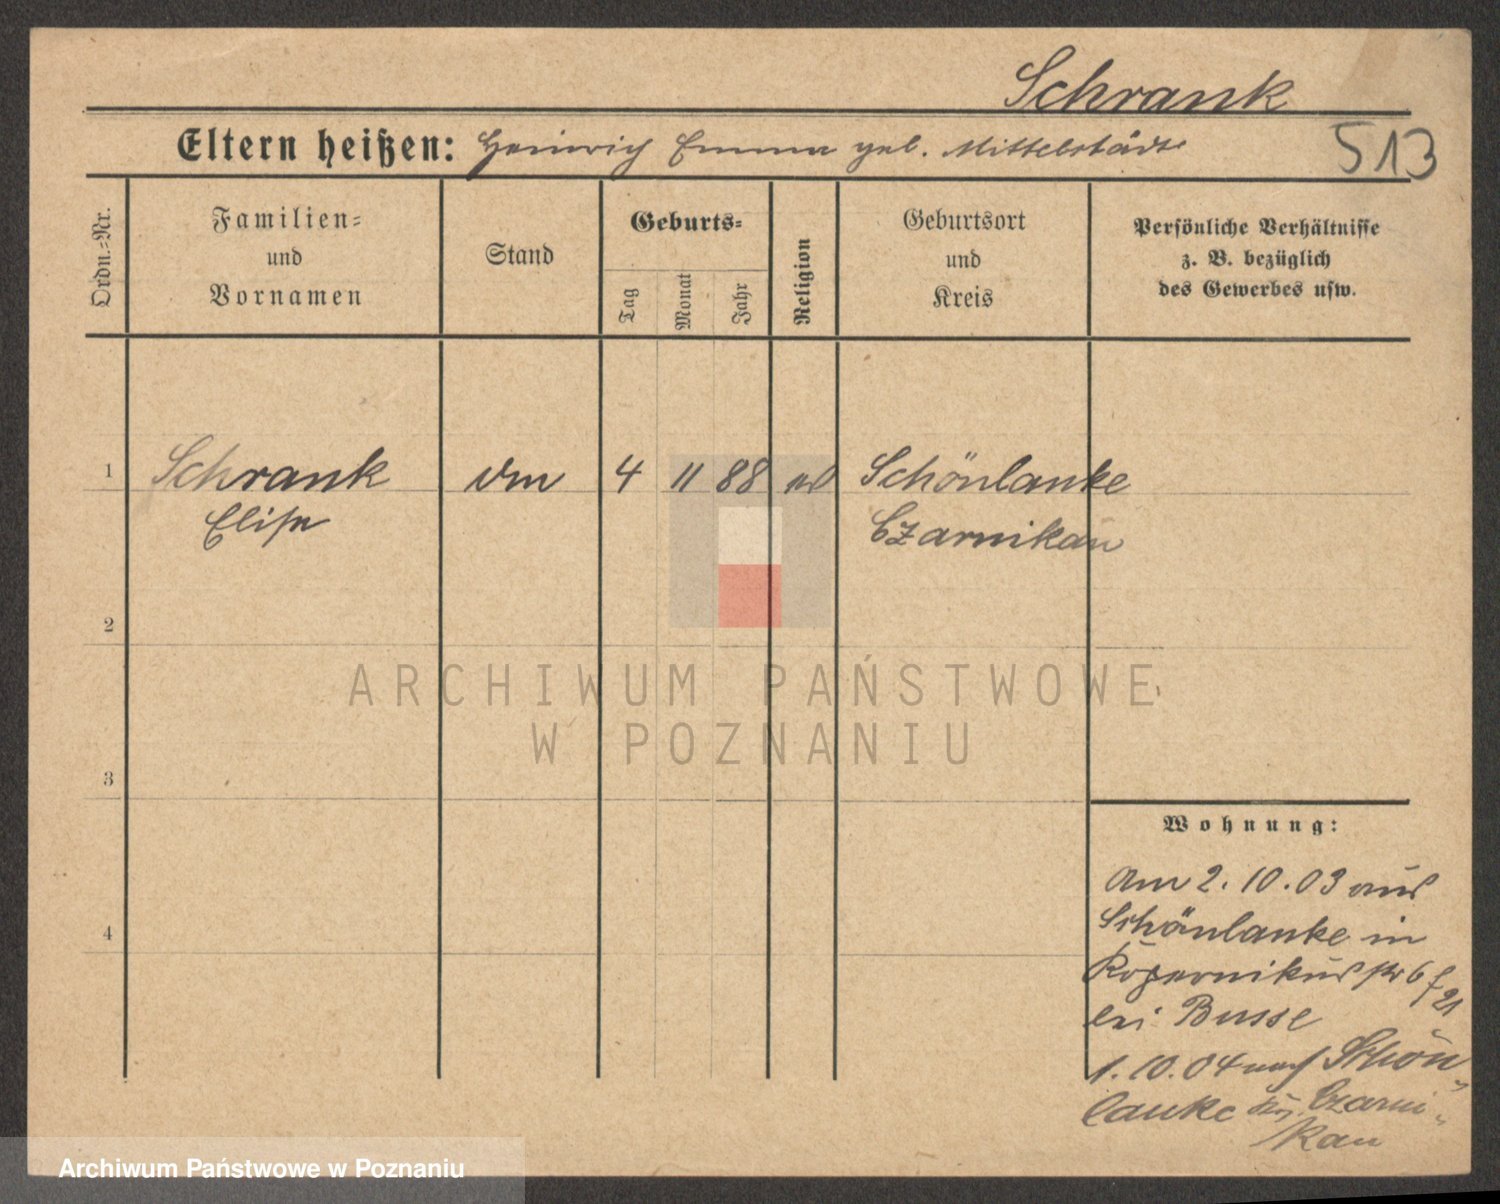 Schrank
Eltern heißen: Heinrich Emma geb. Mittelstädt
513
Ordn.=Nr.
Familien=
und
Vornamen
Stand
Geburts=
Tag
Monat
Jahr
Religion
Geburtsort
und
Kreis
Persönliche Verhältnisse
z. B. bezüglich
des Gewerbes usw.
1 Schrank 4 11 88 Schönlanke
Elise Czarnikau
2
ARCHIWUM PAŃSTWOWE
W POZNANIU
3
Wohnung:
4
Am 2.10.03 aus
Schönlanke in
Kopernikusstr 6
bei Busse
1.10.04 nach Schön
lanke Czarni-
kau
Archiwum Państwowe w Poznaniu